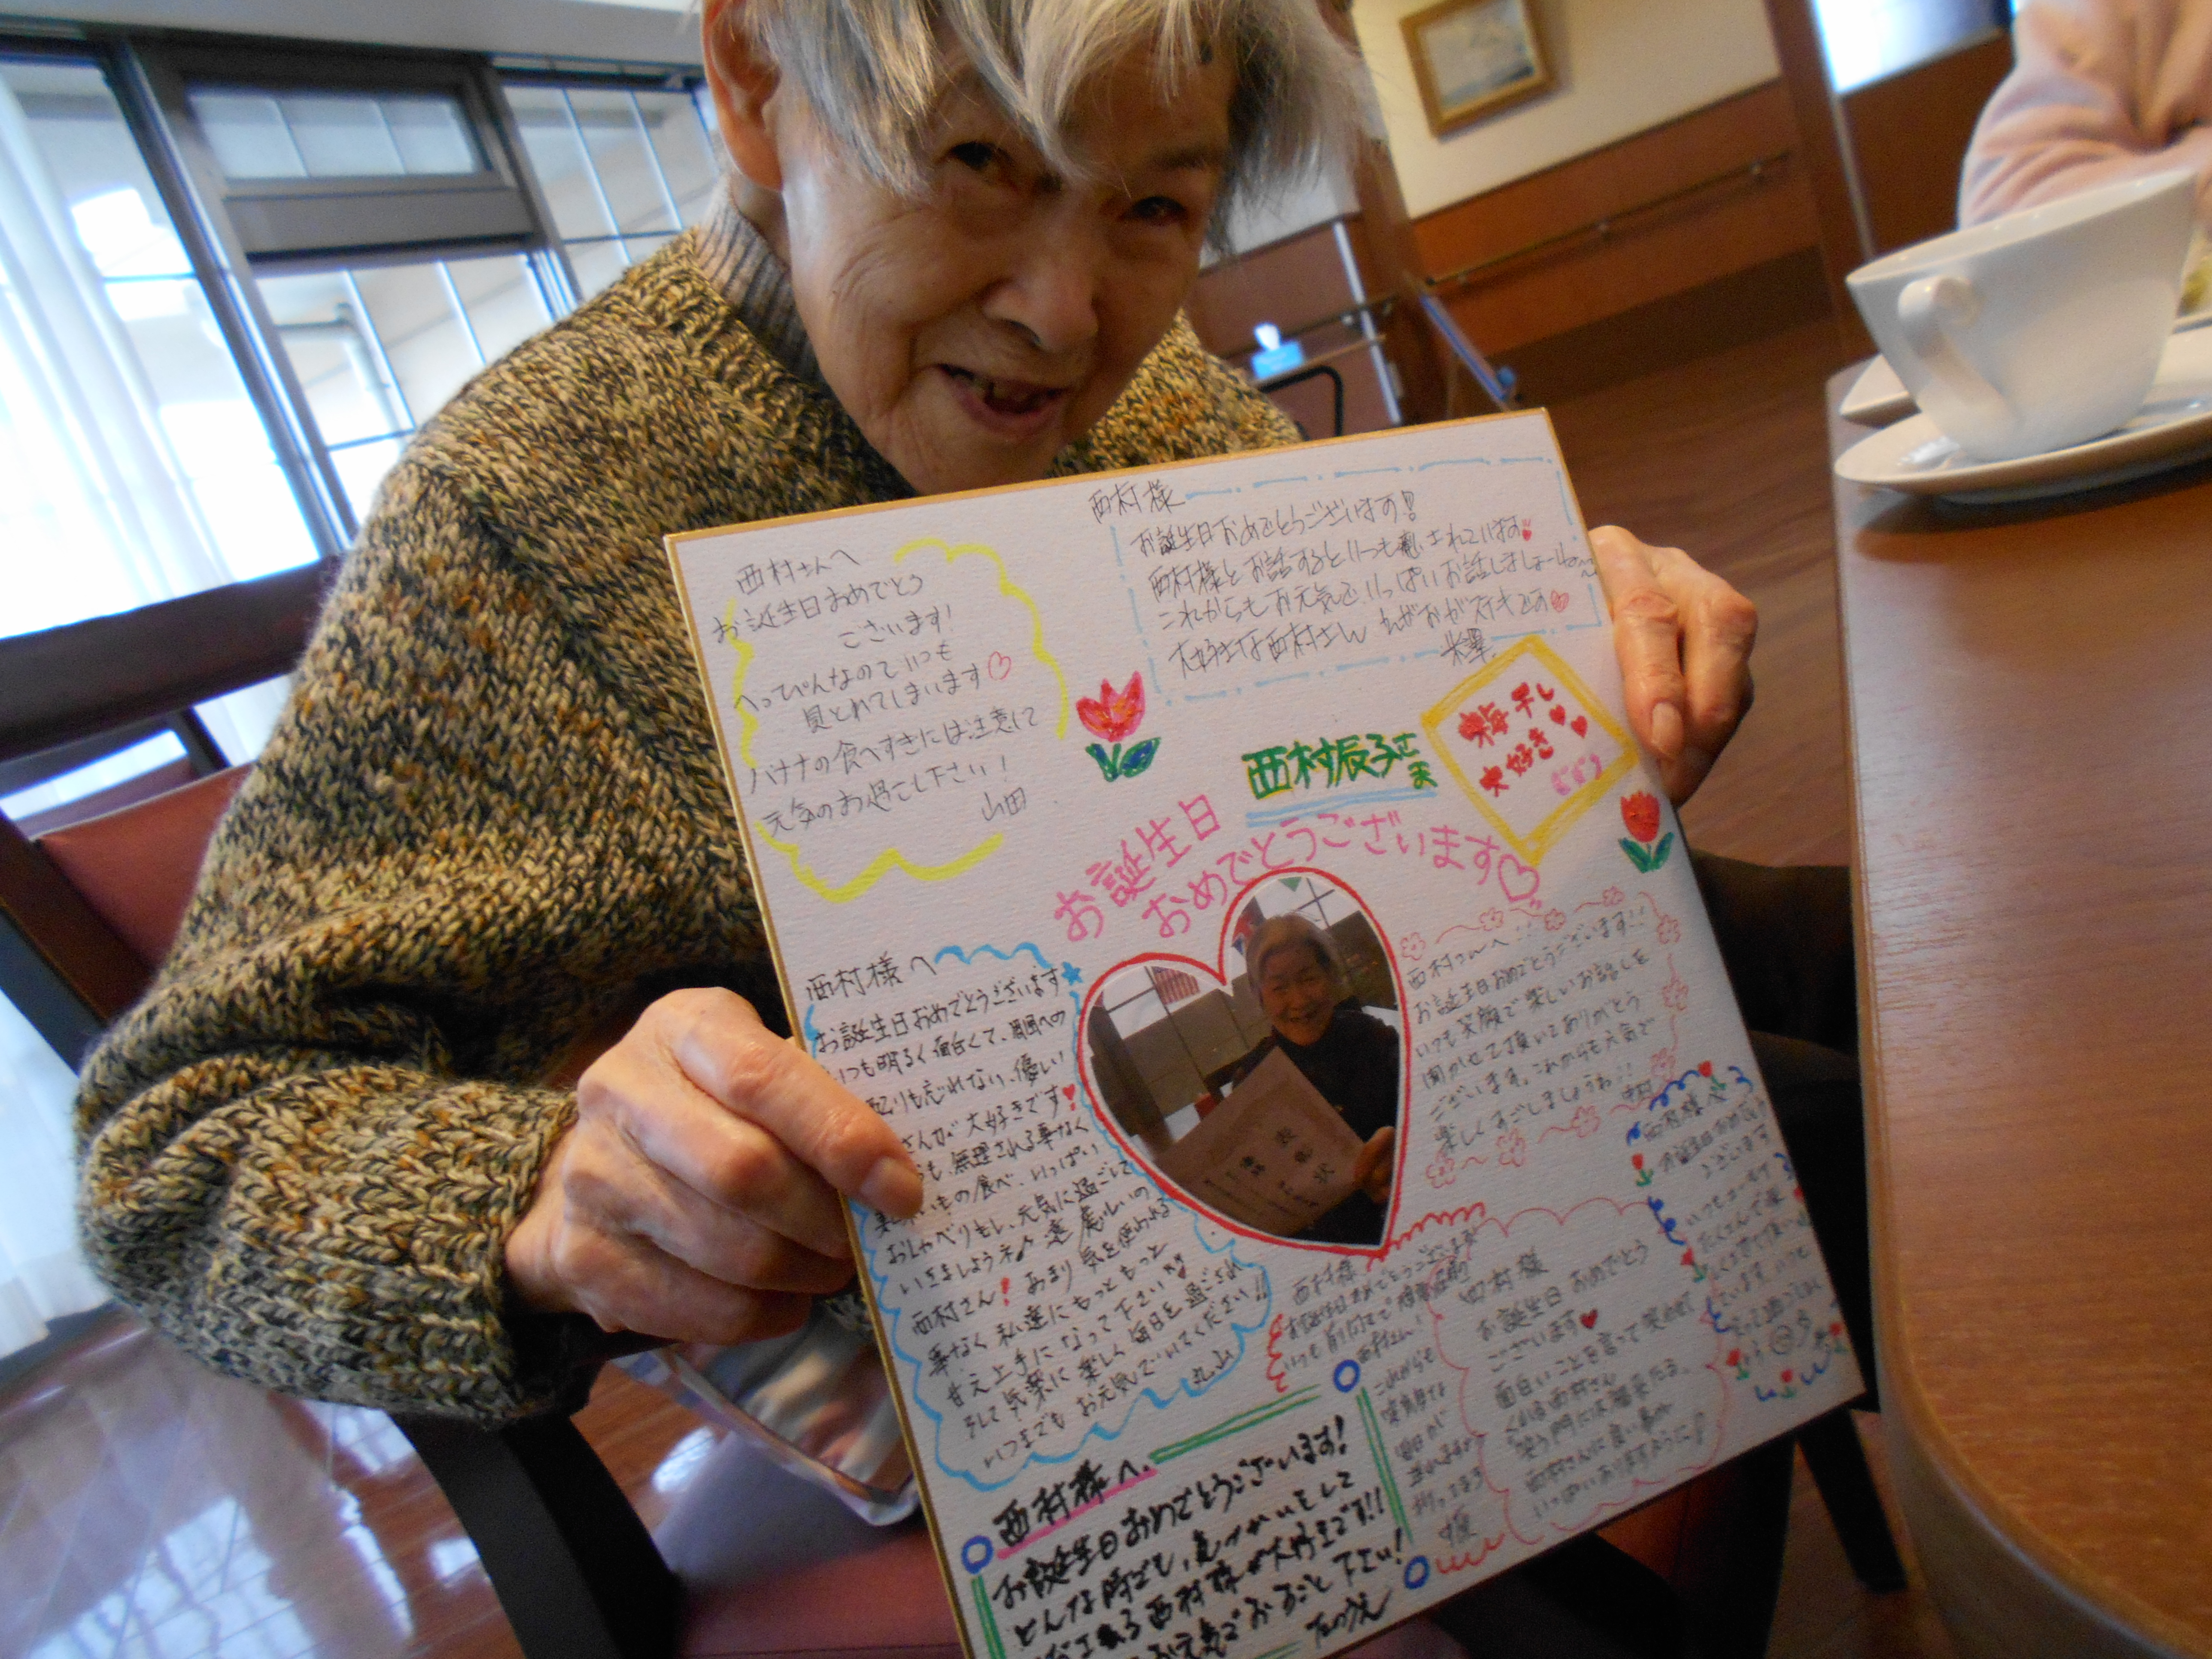 西村様
お誕生日おめでとうございます!!
西村様とお話するといつも癒されています
これからもお元気で、いっぱいお話しましょーね〜
大好きな西村さん えがおがステキです
米澤
西村さんへ
お誕生日おめでとう
ございます!
べっぴんなので いつも
見とれてしまいます♡
バナナの食べすぎには注意して
元気のお過ごし下さい!
山田
西村辰子さま
梅干し
大好き
お誕生日
おめでとうございます♡
西村様へ
お誕生日おめでとうございます
いつも明るく面白くて、周囲への
配りも忘れない、優しい
さんが大好きです
も、無理される事なく
いもの食べ、いっぱい
おしゃべりもし、元気に過ごして
いきましょうネ♪
西村さん! あまり気を使われる
事なく私達にもっともっと
甘え上手になって下さい
そして気楽に楽しく毎日を過ごされ
いつまでもお元気でいてください!!
丸山
表彰状
西村さんへ!!
お誕生日おめでとうございます!!
いつも笑顔で楽しいお話しを
聞かせて頂いてありがとう
ございます。これからも元気で
楽しくすごしましょうね!!
西村様へ
お誕生日おめでとう
ございます
西村様
お誕生日おめでとうございます
西村さん!
これからも
毎日が
西村様
お誕生日おめでとう
ございます♥
面白いことを言って笑わせて
くれる西村さん
笑う門には福来たる、
西村さんに良い事が
いっぱいありますように!
西村様へ
お誕生日おめでとうございます!
どんな時でも、気づかいをして
西村様が大好きです!!
お元気でおすごし下さい!